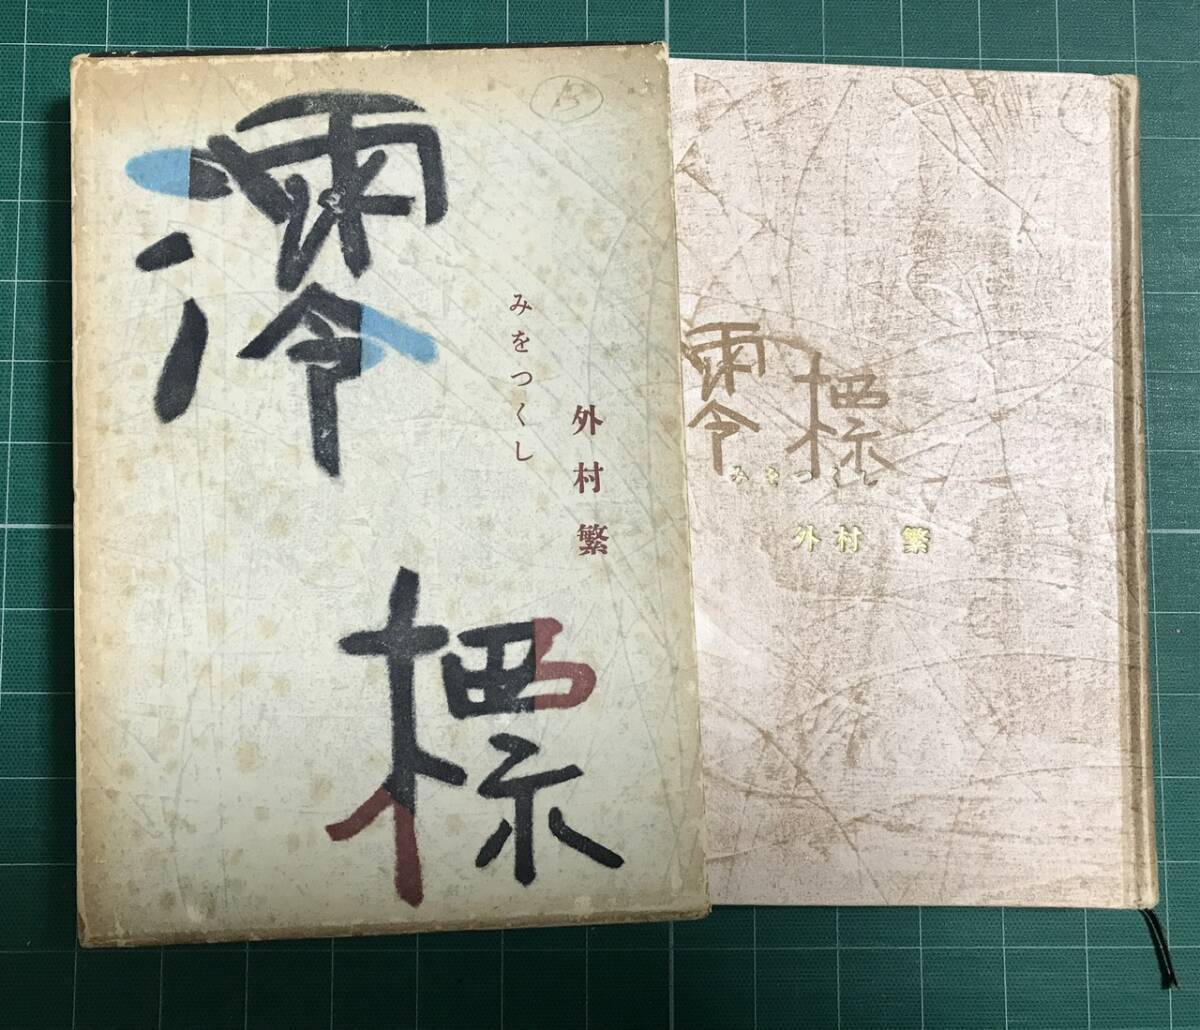 澪標
みをつくし
外村繁
澪標
みをつくし
外村 繁